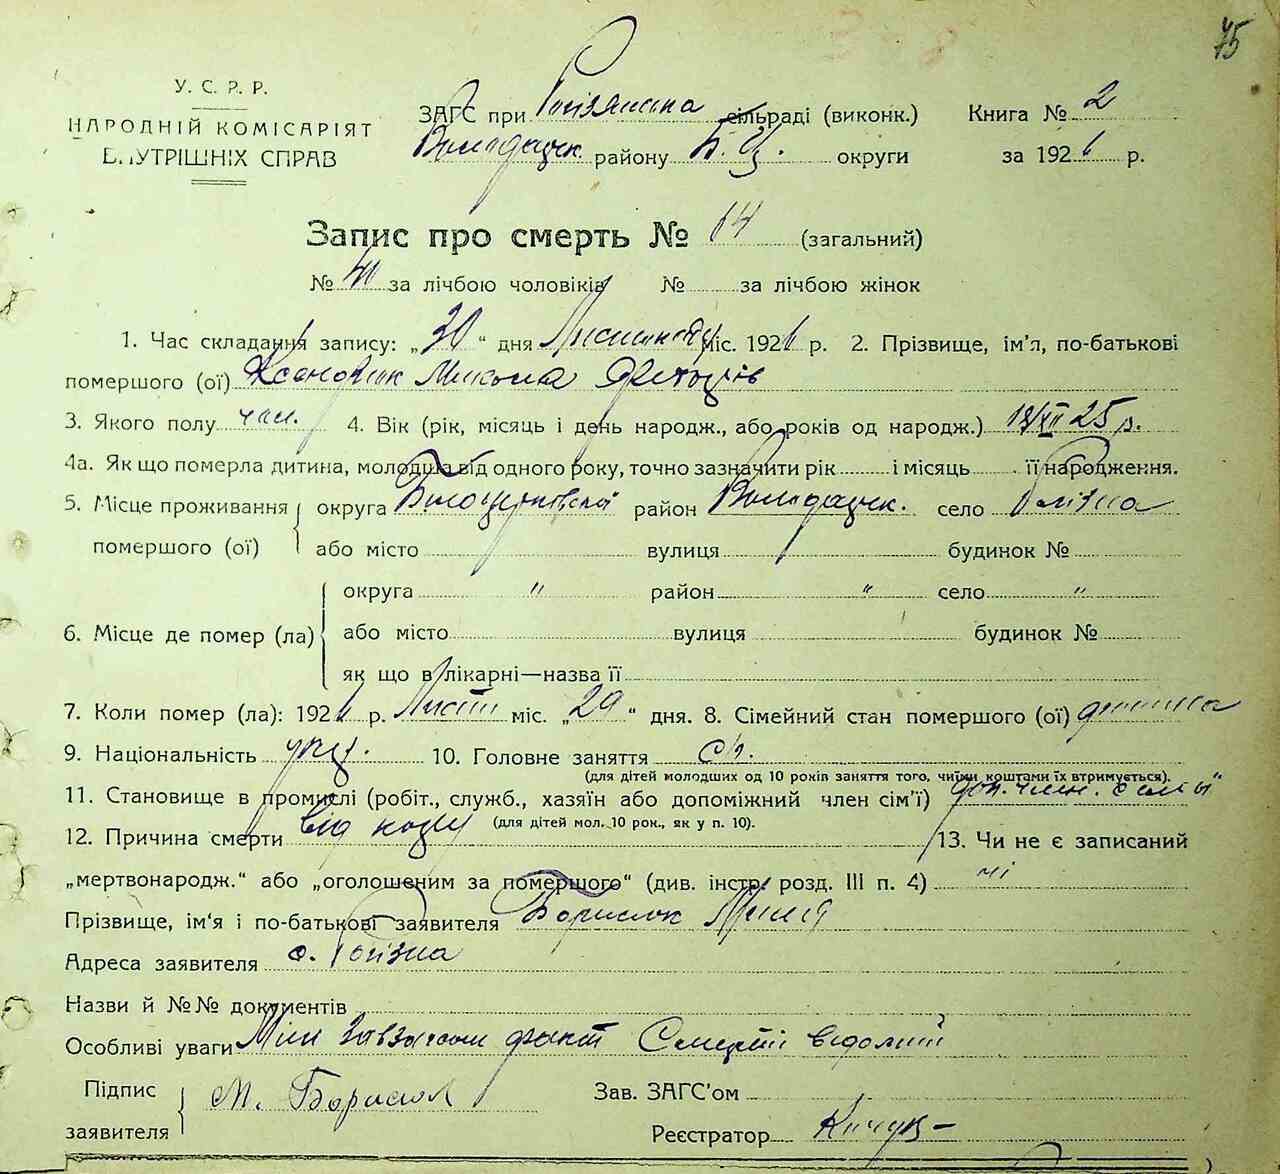 75
У. С. Р. Р.
НАРОДНІЙ КОМІСАРІЯТ
ВНУТРІШНІХ СПРАВ
ЗАГС при сільраді (виконк.) Книга № 2
Володарск. району Б. Ц. округи за 1926 р.
Запис про смерть № 14 (загальний)
№ за лічбою чоловіків № за лічбою жінок
1. Час складання запису: „30“ дня Листопаду міс. 1926 р. 2. Прізвище, ім'я, по-батькові
помершого (ої) Микола
3. Якого полу чол. 4. Вік (рік, місяць і день народж., або років од народж.) 18/XII 25 р.
4а. Як що померла дитина, молодша від одного року, точно зазначити рік і місяць її народження.
5. Місце проживання округа Білоцерківська район Володарск. село
помершого (ої) або місто вулиця будинок №
округа " район " село "
6. Місце де помер (ла) або місто вулиця будинок №
як що в лікарні—назва її
7. Коли помер (ла): 1926 р. Лист міс. „29“ дня. 8. Сімейний стан помершого (ої) дитина
9. Національність укр. 10. Головне заняття сг.
(для дітей молодших од 10 років заняття того, чиїми коштами їх втримується).
11. Становище в промислі (робіт., служб., хазяїн або допоміжний член сім'ї) доп. член.
12. Причина смерти від кору (для дітей мол. 10 рок., як у п. 10). 13. Чи не є записаний
„мертвонародж.“ або „оголошеним за помершого“ (див. інстр. розд. III п. 4) ні
Прізвище, ім'я і по-батькові заявителя Борисюк
Адреса заявителя с.
Назви й №№ документів
Особливі уваги факт Смерті
Підпис М. Борисюк Зав. ЗАГС'ом
заявителя Реєстратор